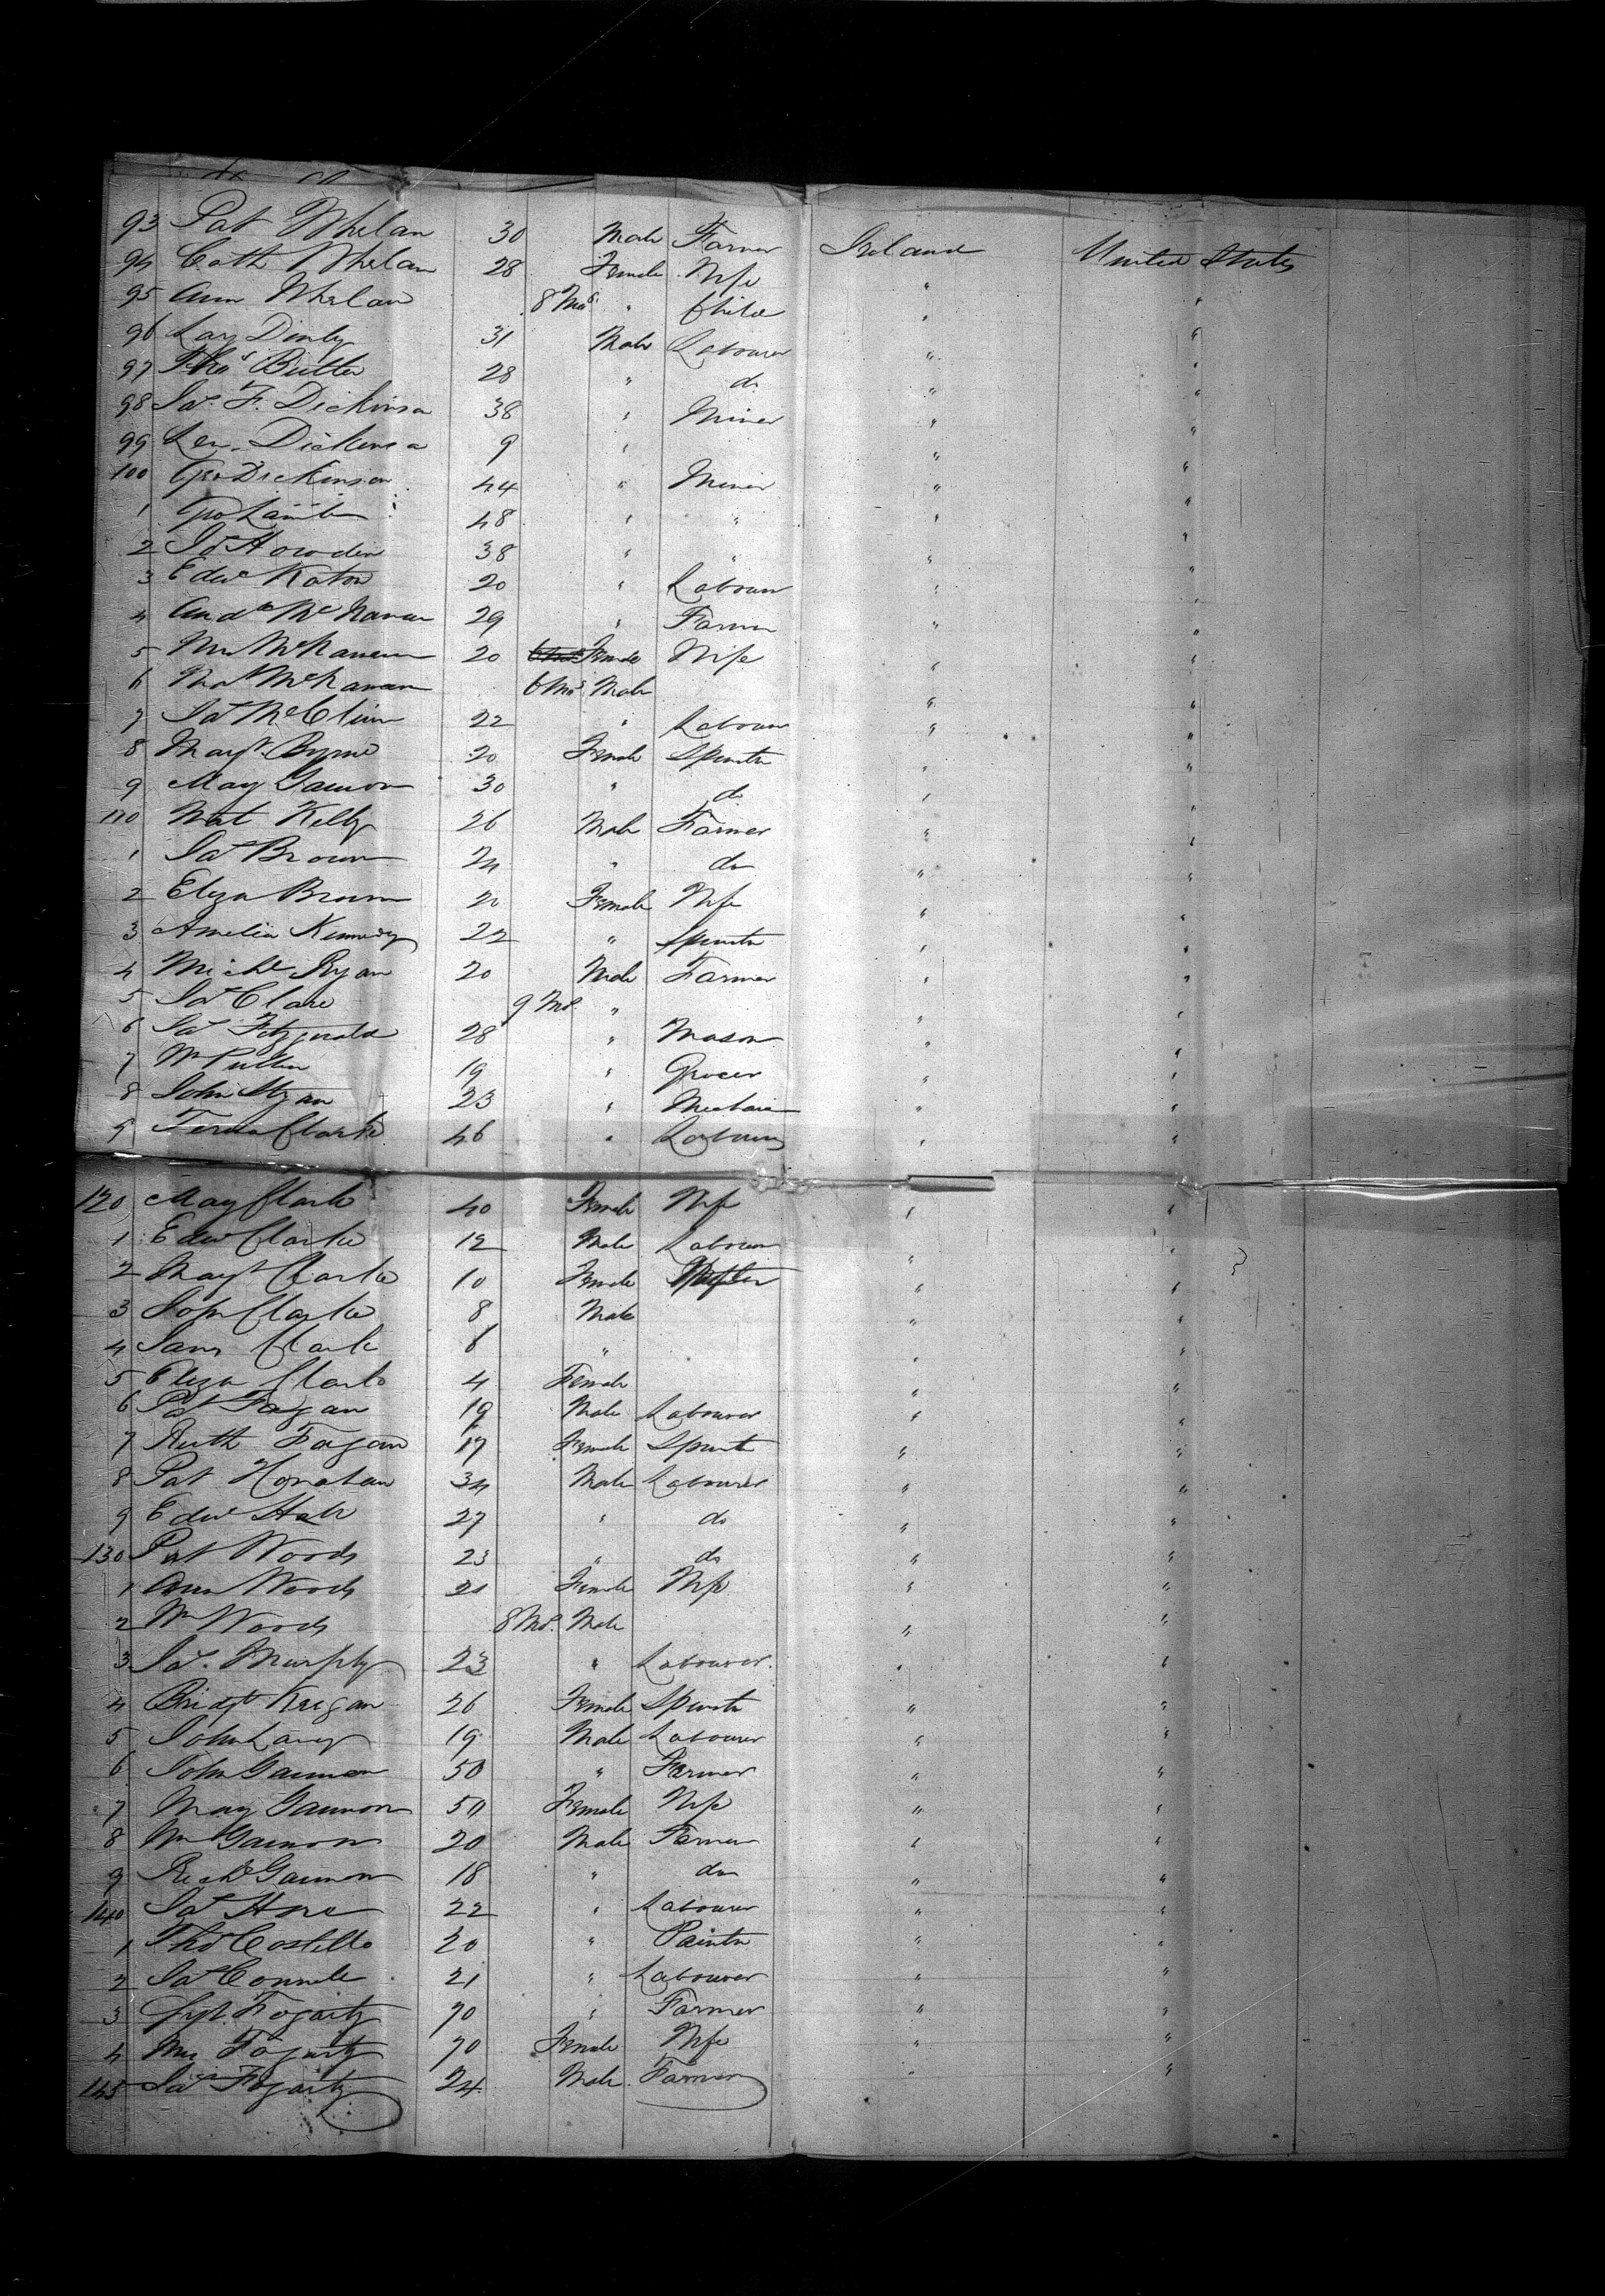 93 Pat Whelan 30 Male Farmer Ireland United States
94 Cath Whelan 28 Female Wife " "
95 Ann Whelan 8 Mos " Child " "
96 31 Male Labourer " "
97 Thos Butler 28 " do " "
98 Jas. F. Dickinson 38 " Miner " "
99 Dickinson 9 " " "
100 Geo Dickinson 44 " Miner " "
1 Geo 48 " " " "
2 Howden 38 " " " "
3 Edwd 20 " Labourer " "
4 Andw 29 " Farmer " "
5 20 Female Wife " "
6 6 Mos Male " "
7 Jas 22 " Labourer " "
8 Margt. Byrne 20 Female Spinster " "
9 Mary Gannon 30 " do " "
110 Mat Kelly 26 Male Farmer " "
1 Jas Brown 24 " do " "
2 Eliza Brown 20 Female Wife " "
3 Amelia Kennedy 22 " Spinster " "
4 Michl Ryan 20 Male Farmer " "
5 Jas Clare 9 Mos. " " "
6 Jas Fitzgerald 28 " Mason " "
7 Wm 19 " Grocer " "
8 John 23 " " "
9 Clarke 46 " Labourer " "
120 Mary Clark 40 Female Wife " "
1 Edwd Clarke 12 Male Labourer " "
2 Margt Clarke 10 Female " "
3 John Clarke 8 Male " "
4 James Clark 6 " " "
5 Eliza Clark 4 Female " "
6 Pat Fagan 19 Male Labourer " "
7 Ruth Fagan 17 Female Spinster " "
8 Pat 34 Male Labourer " "
9 Edwd 27 " do " "
130 Pat Woods 23 " do " "
1 Ann Woods 21 Female Wife " "
2 Wm Woods 8 Mos. Male " "
3 Jas. Murphy 23 " Labourer " "
4 Bridgt Keegan 26 Female Spinster " "
5 John 19 Male Labourer " "
6 John Gannon 50 " Farmer " "
7 Mary Gannon 50 Female Wife " "
8 Wm Gannon 20 Male Farmer " "
9 Richd Gannon 18 " do " "
140 Jas Hore 22 " Labourer " "
1 Thos Costello 20 " Painter " "
2 Jas 21 " Labourer " "
3 Fogarty 70 " Farmer " "
4 Mrs Fogarty 70 Female Wife " "
145 Jas Fogarty 24 Male Farmer " "